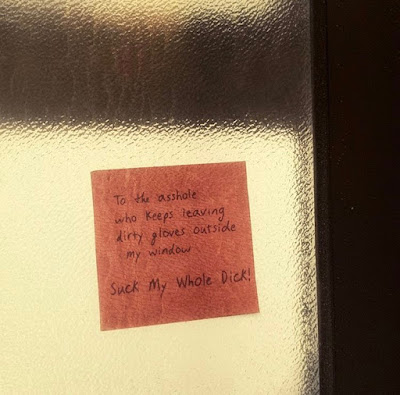 To the asshole
who keeps leaving
dirty gloves outside
my window
Suck My Whole Dick!